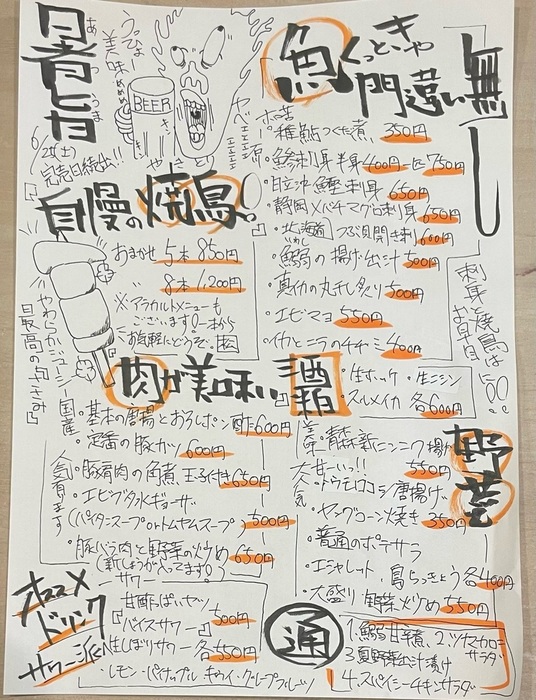 暑旨
あつ
うま
うっひょ
美味めめめ
BEER
6/21(土)
完売日続出!!
自慢の焼鳥!
やき
おまかせ 5本 850円
8本 1,200円
※アラカルトメニューも
ございます!一本から
お気軽にどうぞ
やわらかジューシー国産
魚くっとしきゃ
門違い無し
・稚鮎つくだ煮 350円
刺身半身 400円 一匹 750円
刺身 650円
・静岡メバチマグロ刺身 650円
・北海道つぶ貝開き刺 600円
・鰯の揚げ出汁 500円
・真イカの丸干し炙り 500円
・エビマヨ 550円
・イカとニラのチヂミ 400円
刺身と焼鳥は
お早目に○○!!
肉が美味い酒
・生ホッケ ・生ニシン
・スルメイカ 各600円
・基本の唐揚とおろしポン酢 600円
・定番の豚カツ 600円
人気有ります
・豚肩肉の角煮 玉子付き 650円
・エビブタ水ギョーザ
(パイタンスープorトムヤムスープ) 500円
・豚バラ肉と野菜の炒め 650円
(新しょうが
野菜
・青森新ニンニク揚げ 550円
大人気
甘ーいっ!!
・トウモロコシ唐揚げ
・ヤングコーン焼き 350円
・普通のポテサラ
・エシャレット、島らっきょう 各400円
・大盛り 野菜炒め 550円
オススメ
ドリンク
サワー派
サワー
甘酢っぱいヤツ
『バイスサワー』 500円
生しぼりサワー各 550円
・レモン・パイナップル キウイ・グレープフルーツ
通
1.鰯甘辛煮、2.ツナマカロニ
サラダ
3.夏野菜出汁漬け
4.スパイシーチキンサラダ